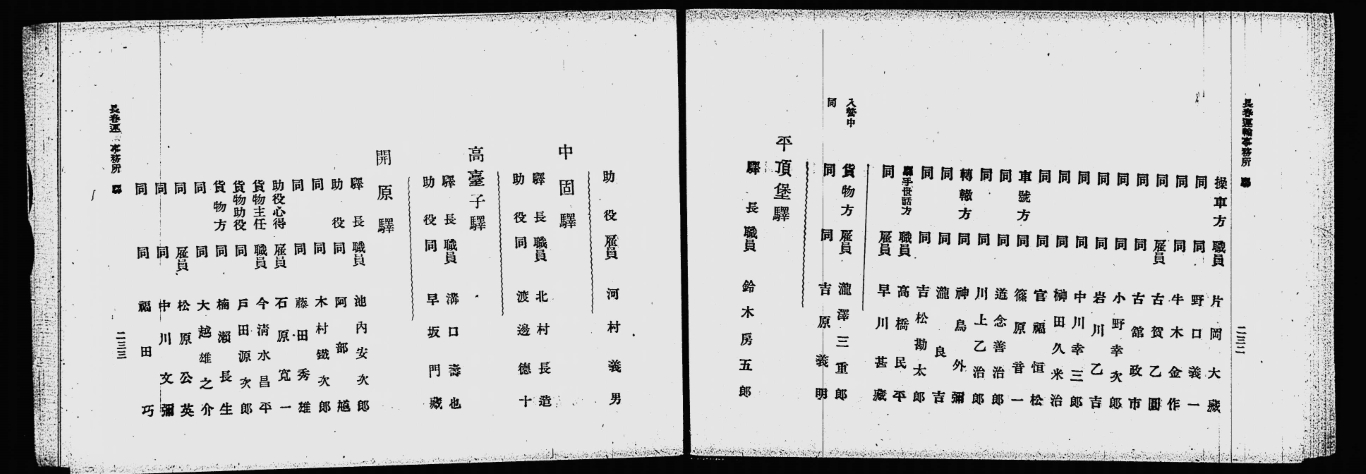 長春運輸事務所 驛 二三二
操車方 職員 片岡大藏
同 同 野口義一
同 同 牛木金作
同 雇員 古賀乙圓
同 同 古舘政市
同 同 小野幸次郎
同 同 岩川乙吉
同 同 中川幸三郎
同 同 榊田久米治
同 同 官福恒松
車號方 同 篠原音一
同 同 道念善治郎
同 同 川上乙治郎
轉轍方 同 神鳥外彌
同 同 瀧良吉
同 同 吉松勘太郎
驛手世話方 職員 高橋民平
同 雇員 早川甚藏
入營中 貨物方 雇員 瀧澤三重郎
同 同 同 吉原義明
平頂堡驛
驛長 職員 鈴木房五郎
助役 雇員 河村義男
中固驛
驛長 職員 北村長造
助役 同 渡邊德十
高臺子驛
驛長 職員 溝口壽也
助役 同 早坂門藏
開原驛
驛長 職員 池內安次郎
助役 同 阿部
同 同 木村鐵次郎
同 同 藤田秀雄
助役心得 雇員 石原寬一
貨物主任 職員 今清水昌平
貨物助役 同 戶田源次郎
貨物方 同 楠瀨長生
同 同 大越雄之介
同 雇員 松原公英
同 同 中川文彌
同 同 福田巧
長春運 事務所 驛 二三三